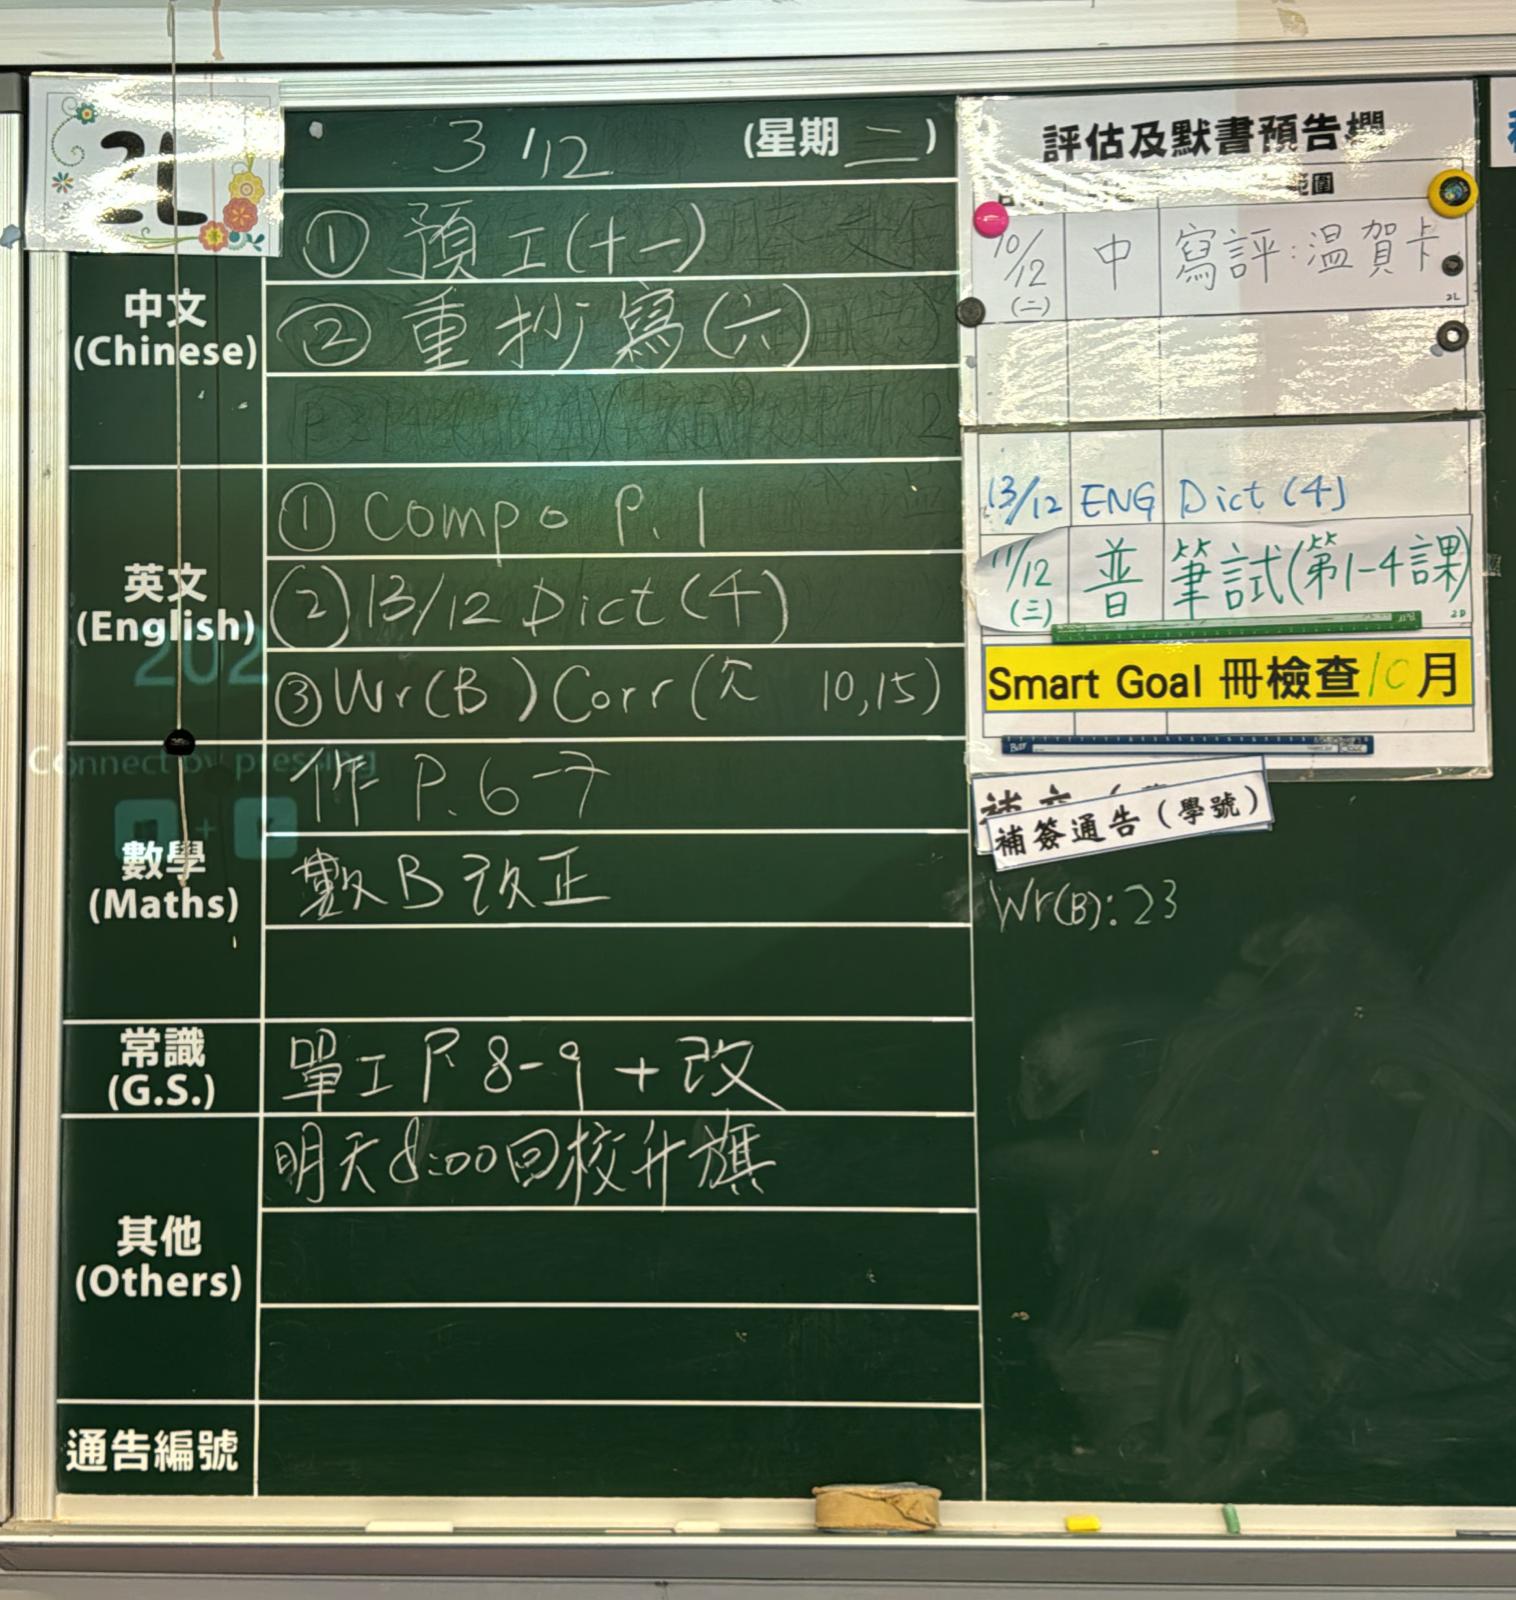 2L
3/12 (星期二)
中文
(Chinese)
① 預工(十一)
② 重抄寫(六)
英文
(English)
① Compo P.1
② 13/12 Dict (4)
③ Wr(B) Corr (欠 10,15)
202
Connect by pressing
+
數學
(Maths)
作 P.6-7
數B改正
常識
(G.S.)
單工 P.8-9 + 改
其他
(Others)
明天8:00回校升旗
通告編號
評估及默書預告欄
範圍
10/12 (二) 中 寫評:温賀卡
2L
13/12 ENG Dict (4)
11/12 (三) 普 筆試(第1-4課)
Smart Goal 冊檢查10月
補簽通告(學號)
Wr(B): 23